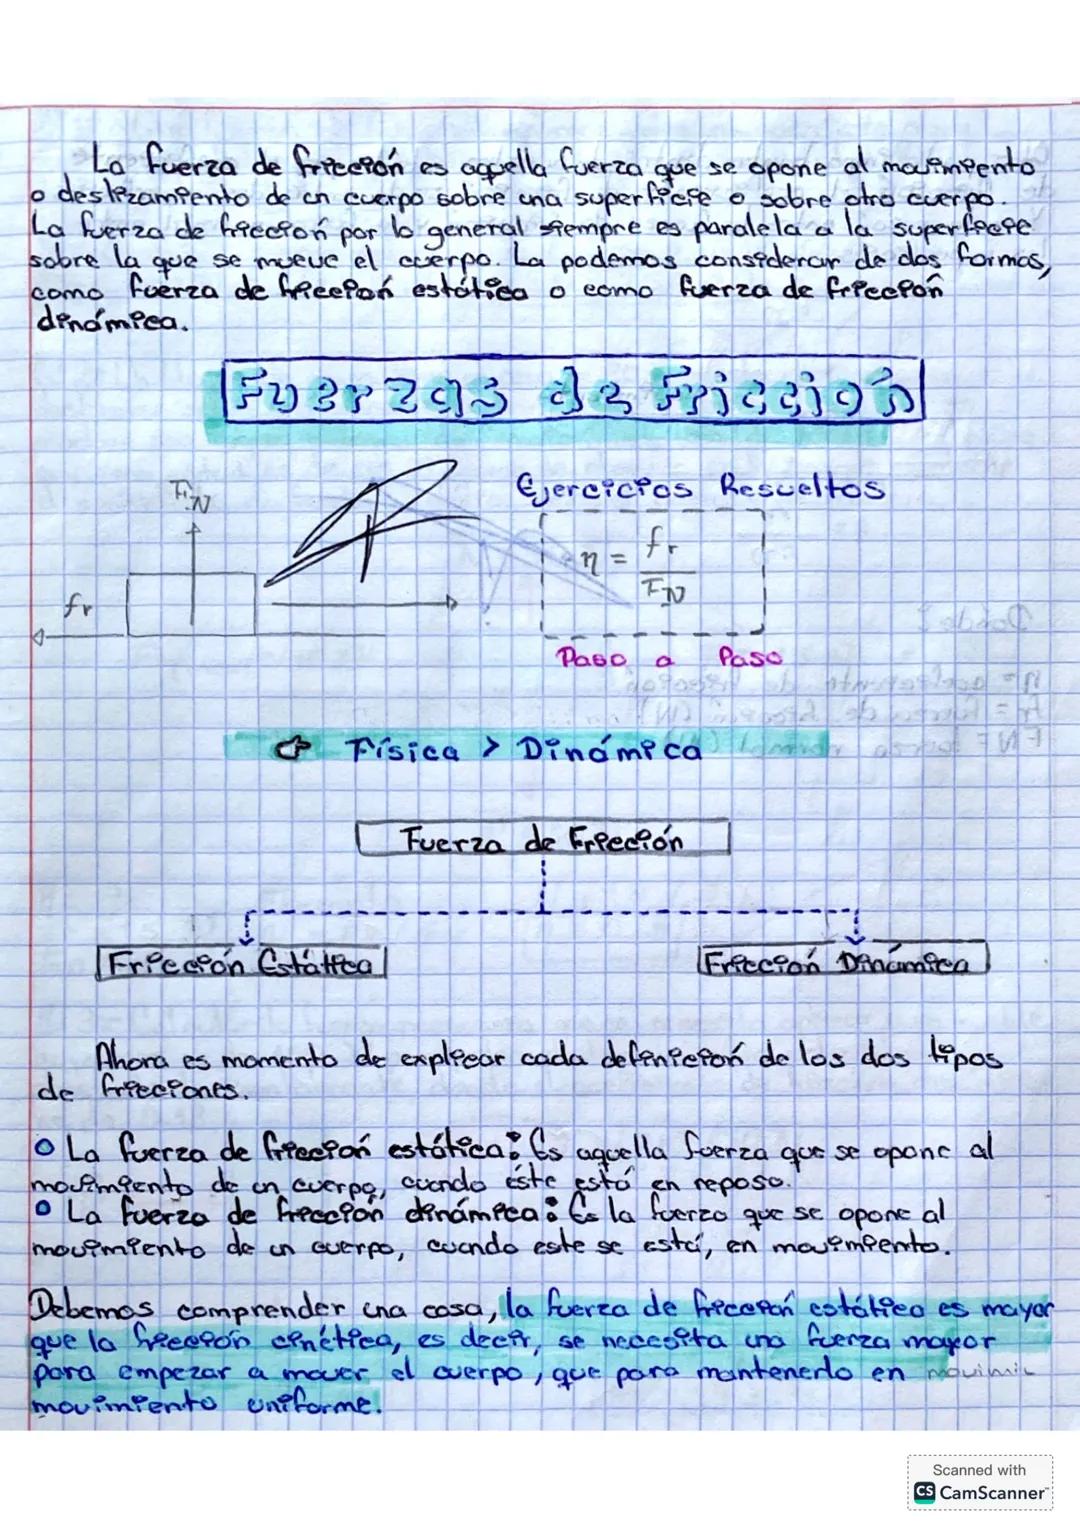 La fuerza de fricción es aquella fuerza que se opone al movimiento
o deslizamiento de un cuerpo sobre una superficie o sobre otro cuerpo.
La fuerza de fricción por lo general siempre es paralela a la superficie
sobre la que se mueve el cuerpo. La podemos considerar de dos formas,
como fuerza de fricción estática o como fuerza de fricción
dinámica.
Fuerzas de Fricción
Ejercicios Resueltos
FN
fr
η = fr / FN
Paso a Paso
Física > Dinámica
Fuerza de Fricción
Fricción Estática
Fricción Dinámica
Ahora es momento de explicar cada definición de los dos tipos
de fricciones.
La fuerza de fricción estática: Es aquella fuerza que se opone al
movimiento de un cuerpo, cuando éste está en reposo.
La fuerza de fricción dinámica: Es la fuerza que se opone al
movimiento de un cuerpo, cuando este se está, en movimiento.
Debemos comprender una cosa, la fuerza de fricción estático es mayor
que la fricción cinética, es decir, se necesita una fuerza mayor
para empezar a mover el cuerpo, que para mantenerlo en movimi
movimiento uniforme.
Scanned with
CS CamScanner